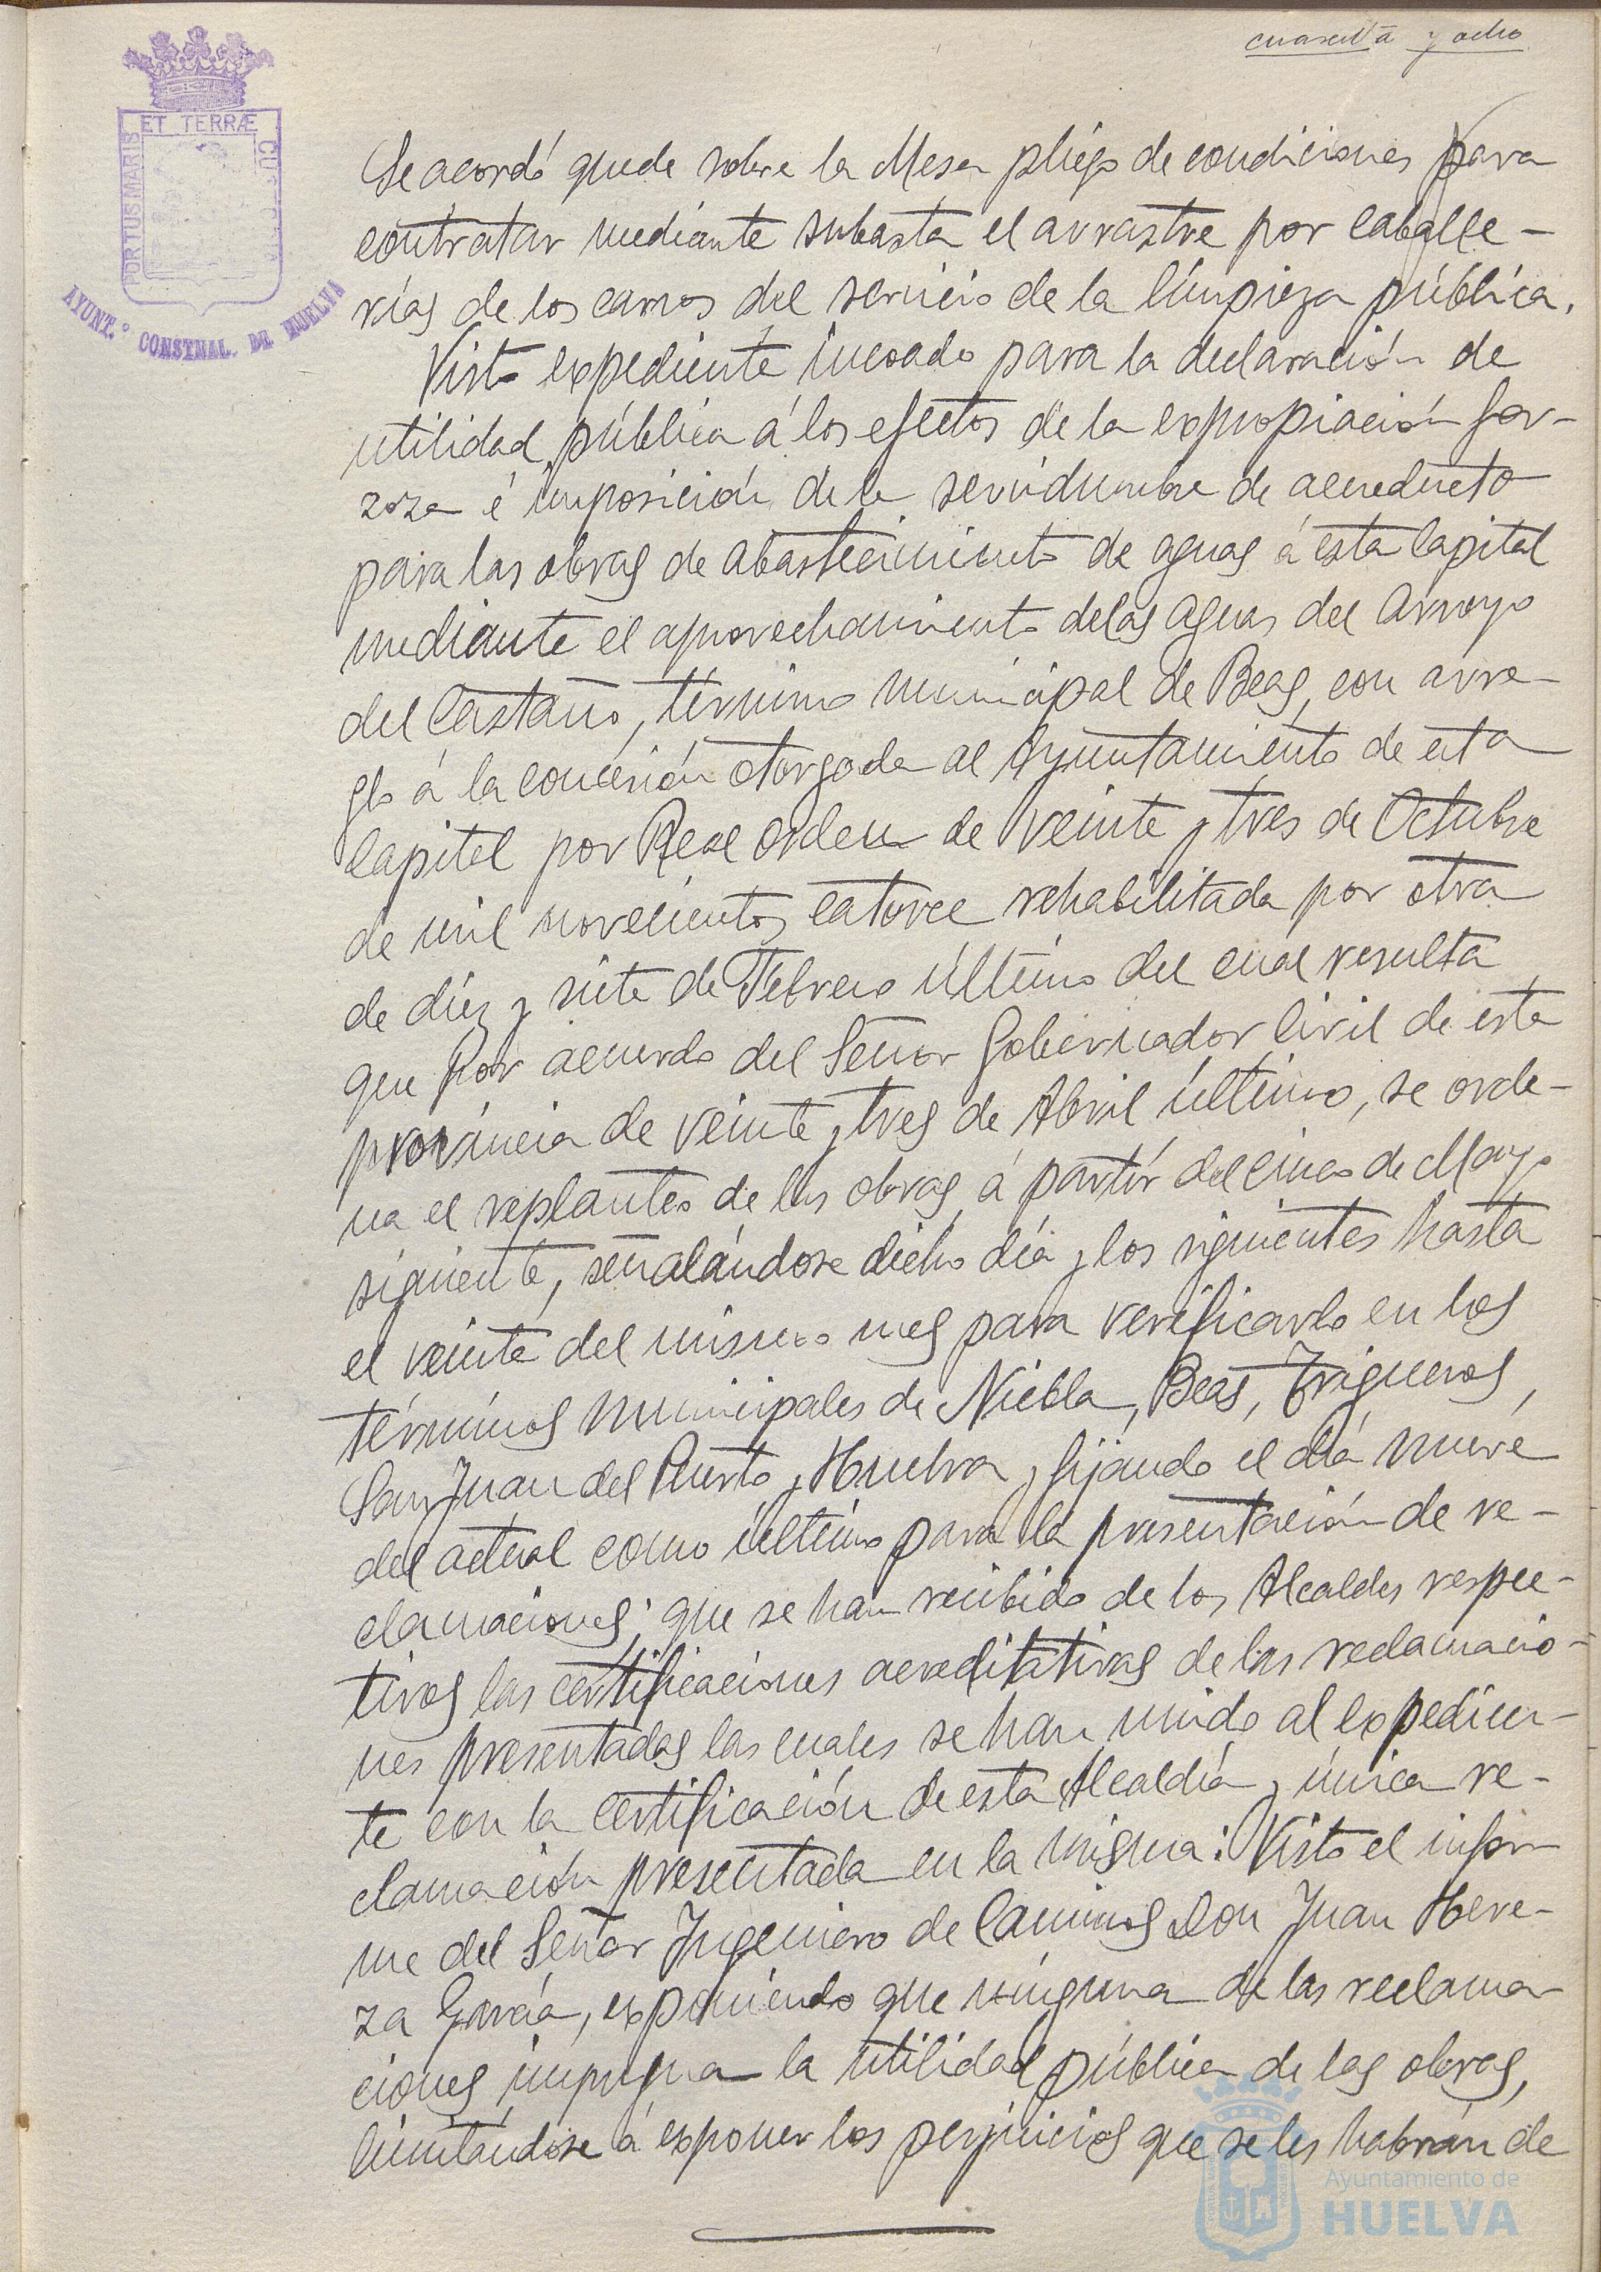 cuarenta y ocho
ET TERRÆ
PORTUS MARIS
AYUNT.º CONSTNAL. DE HUELVA
Se acordó quede sobre la Mesa pliego de condiciones para
contratar mediante subasta el arrastre por caballe-
rías de los carros del servicio de la limpieza pública.
Visto expediente incoado para la declaración de
utilidad pública á los efectos de la expropiación for-
zosa é imposición de la servidumbre de acueducto
para las obras de abastecimiento de aguas á esta Capital
mediante el aprovechamiento de las aguas del Arroyo
del Castaño, término municipal de Beas, con arre-
glo á la concesión otorgada al Ayuntamiento de esta
Capital por Real orden de veinte y tres de Octubre
de mil novecientos catorce rehabilitada por otra
de diez y siete de Febrero último del cual resulta
que por acuerdo del Señor Gobernador Civil de esta
provincia de veinte y tres de Abril último, se orde-
na el replanteo de las obras á partir del cinco de Mayo
siguiente, señalándose dicho día y los siguientes hasta
el veinte del mismo mes para verificarlo en los
términos municipales de Niebla, Beas, Trigueros,
San Juan del Puerto y Huelva y fijando el día nueve
del actual como último para la presentación de re-
clamaciones; que se han recibido de los Alcaldes respec-
tivos las certificaciones acreditativas de las reclamacio-
nes presentadas las cuales se han unido al expedien-
te con la certificación de esta Alcaldía y única re-
clamación presentada en la misma: Visto el infor
me del Señor Ingeniero de Caminos Don Juan Here-
za García, exponiendo que ninguna de las reclama
ciones impugna la utilidad pública de las obras,
limitándose á exponer los perjuicios que se les habrán de
Ayuntamiento de
HUELVA